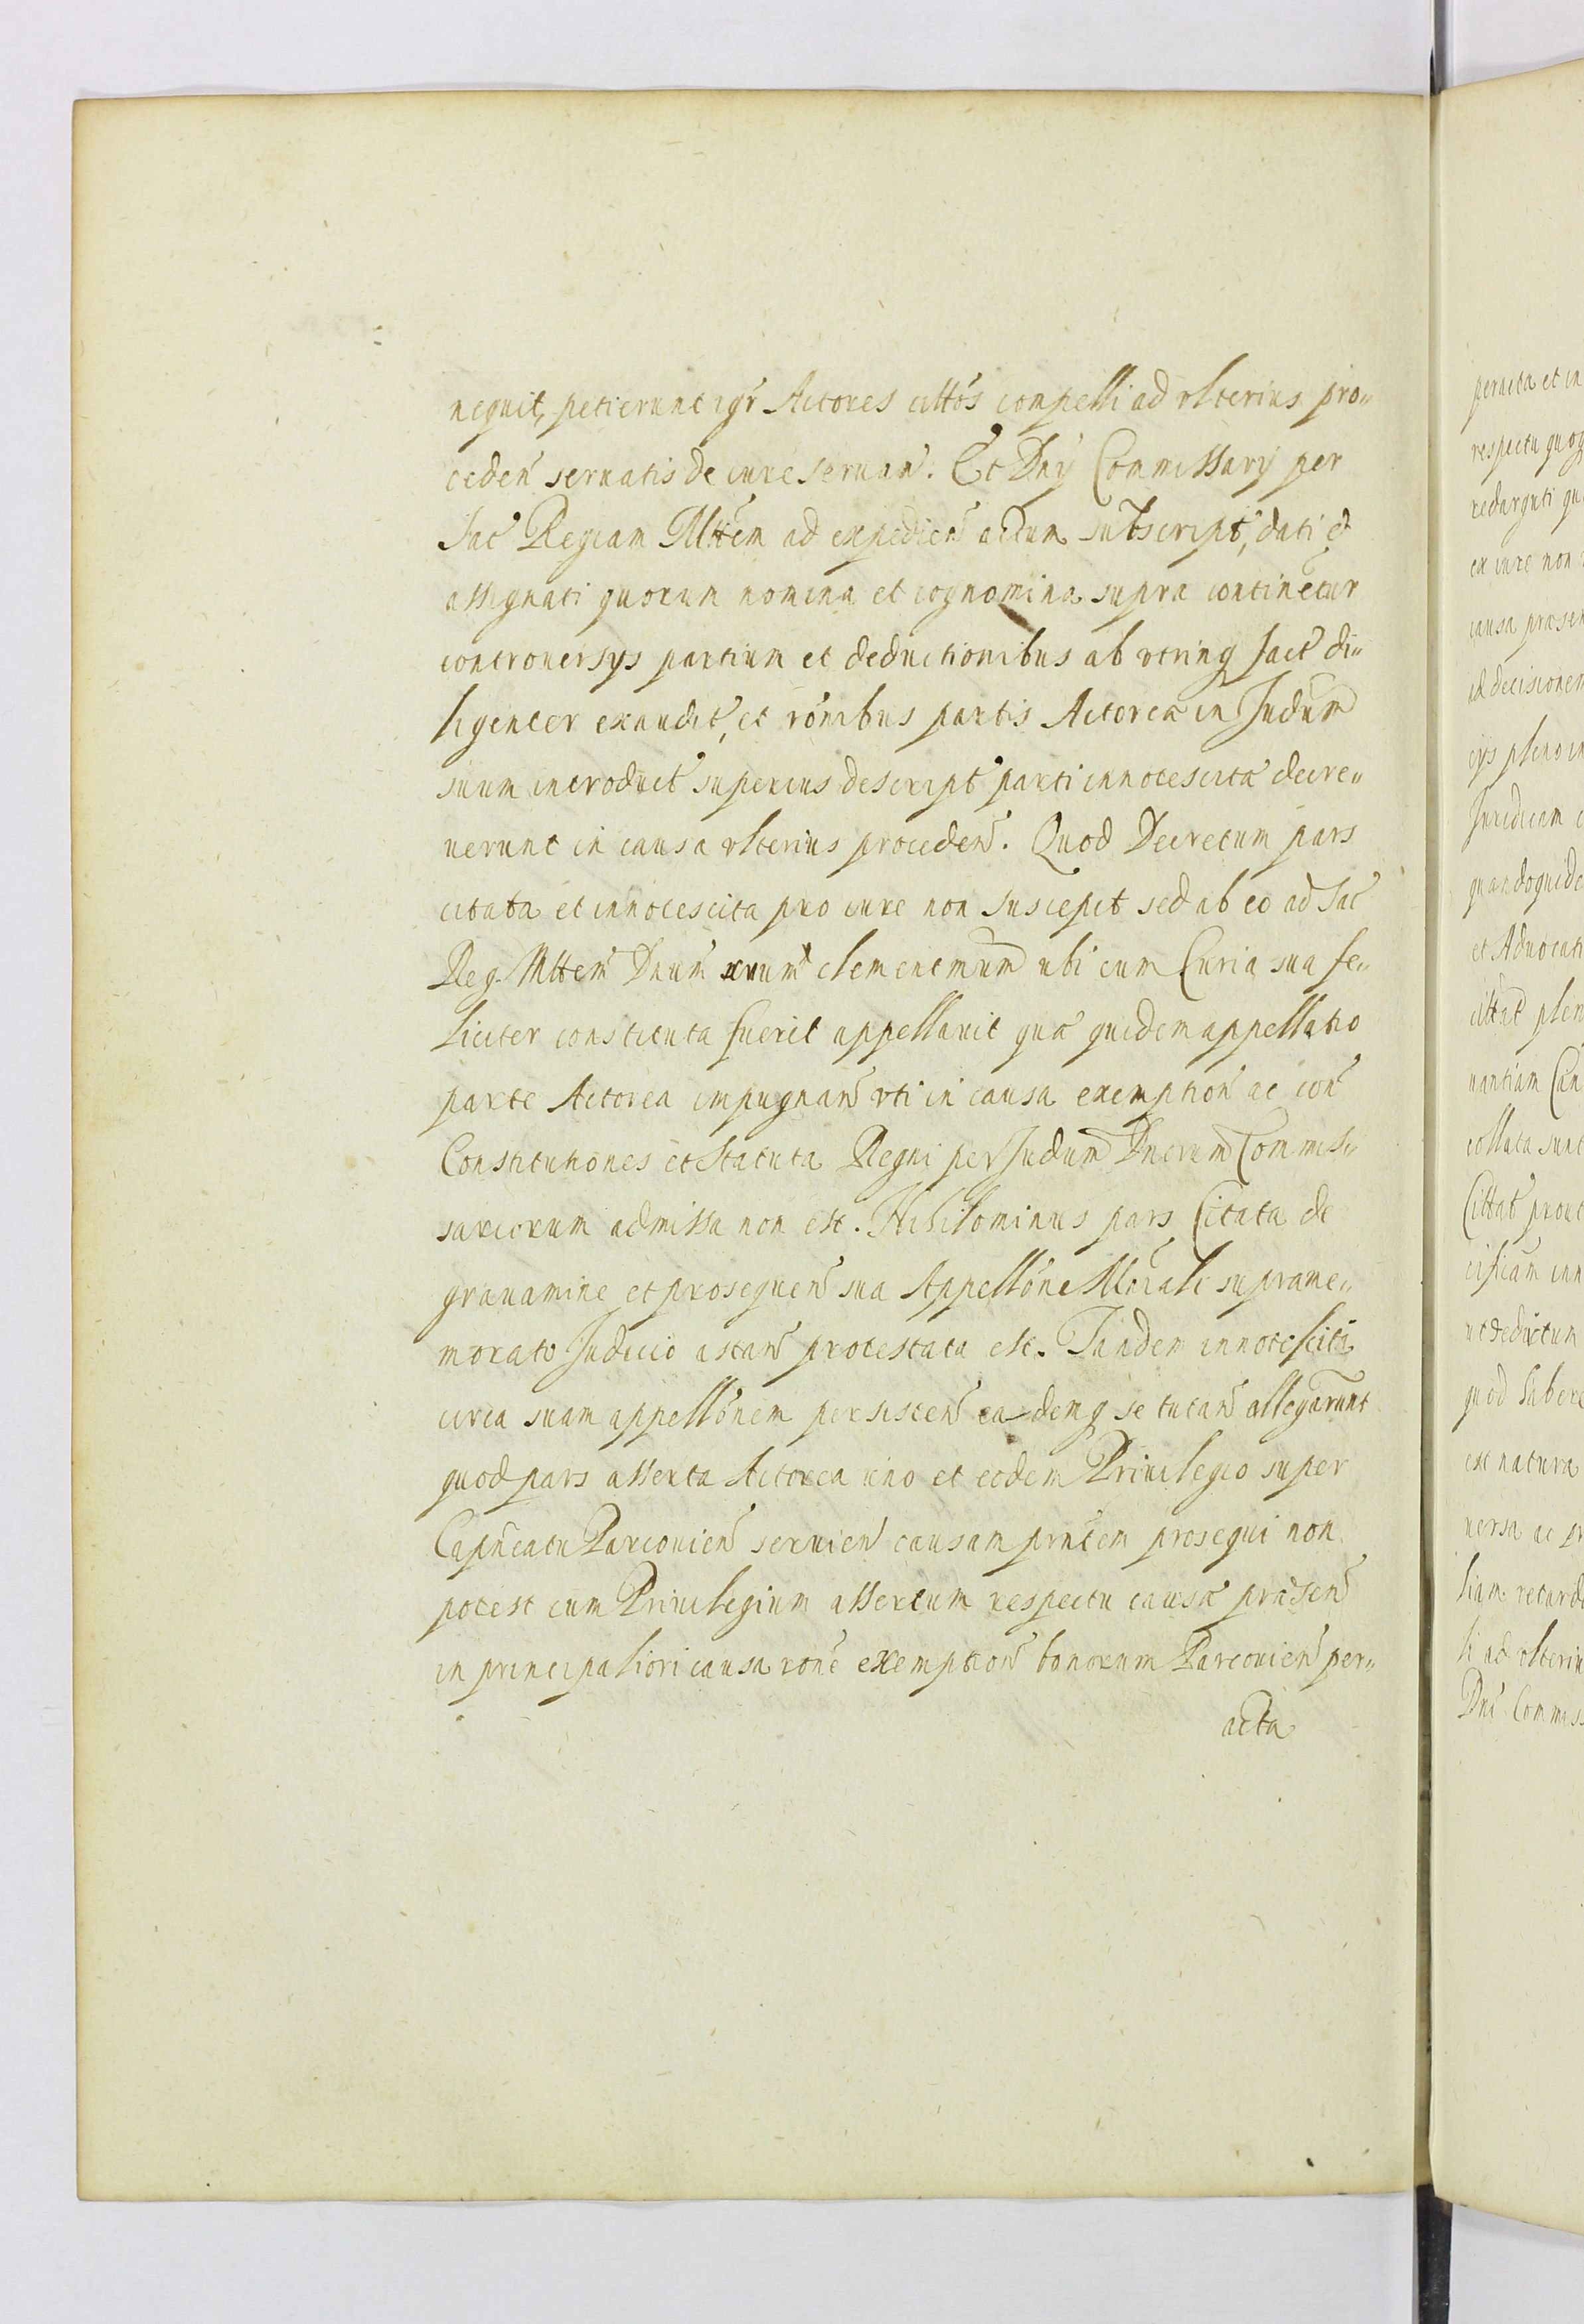 nequit, petierunt igr Actores cittos compelli ad vlterius pro„
ceden seruatis de iure seruan. Et Dny Commissary per
Sac Regiam Mttem ad expedien actum subscript, dati et
assignati quorum nomina et cognomina supra continetur
controuersys partium et deductionibus ab vtrinq fact di„
ligenter exaudit, et ronibus partis Actorea in Judum
suum introduct superius descript parti innotescita decre„
uerunt in causa vlterius proceden. Quod Decretum pars
citata et innotescita pro iure non suscepit sed ab eo ad Sac
Reg. Mttem Dnum nrum clementmum ubi cum Curia sua fe„
liciter constituta fuerit appellauit qua quidem appellatio
parte Actorea impugnan vti in causa exemption ac con
Constitutiones et Statuta Regni per Judum Dnorum Commis„
sariorum admissa non est. Nihilominus pars Citata de
grauamine et prosequen sua Appellone Mniali suprame„
morato Judicio astan protestata est. Tandem innotesciti
circa suam appellonem persisten eademq se tutan allegarunt
quod pars asserta Actorea uno et eodem Priuilegio super
Capncatu Parcouien seruien causam pntem prosequi non
potest cum Priuilegium assertum respectu causa præsen
in principaliori causa rone exemption bonorum Parcouien per„
acta
peracta et in
respectu quoq
redarguti qu
ex iure non
causa præsen
ad decisionem
cys pleno in
Juridicam
quandoquide
et Aduocati
cittat plen
nantiam
collata sunt
Cittat prout
inn
ut deductum
quod habere
est natura
uersa ac pr
liam retard
li ad vlteriu
Dni Commiss